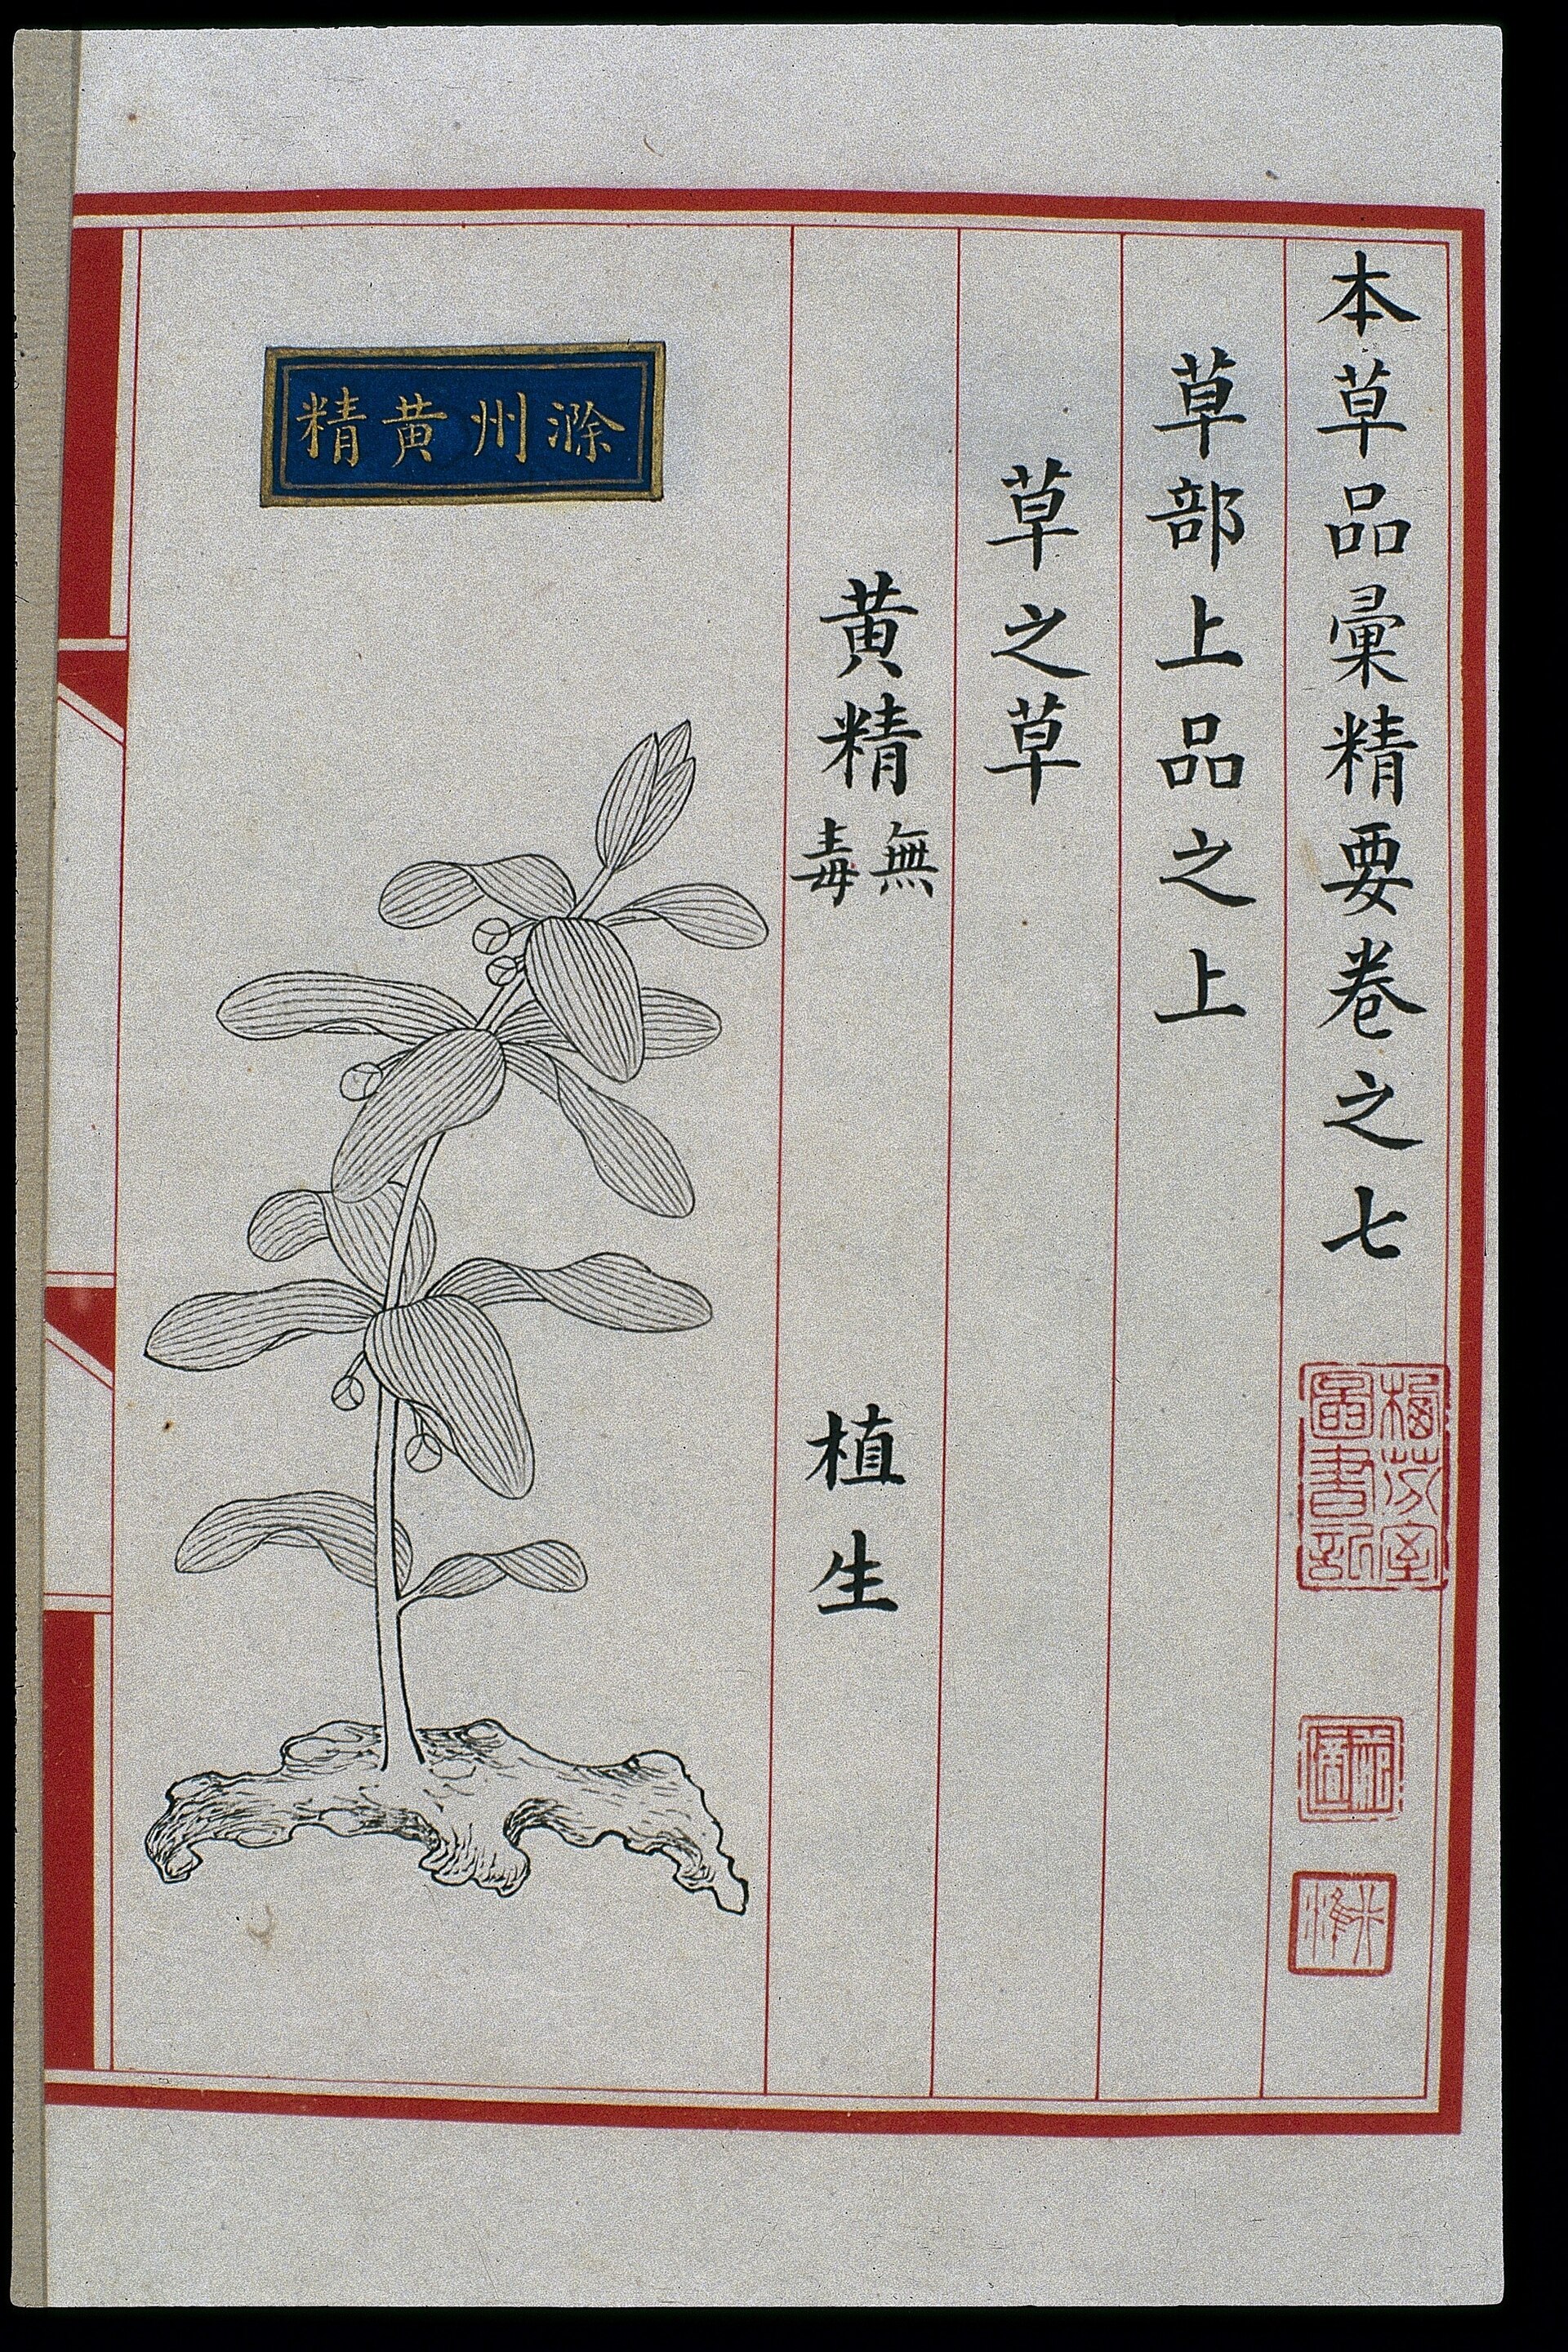 本草品彙精要卷之七
草部上品之上
草之草
黄精 無毒 植生
滁州黄精
圖書記